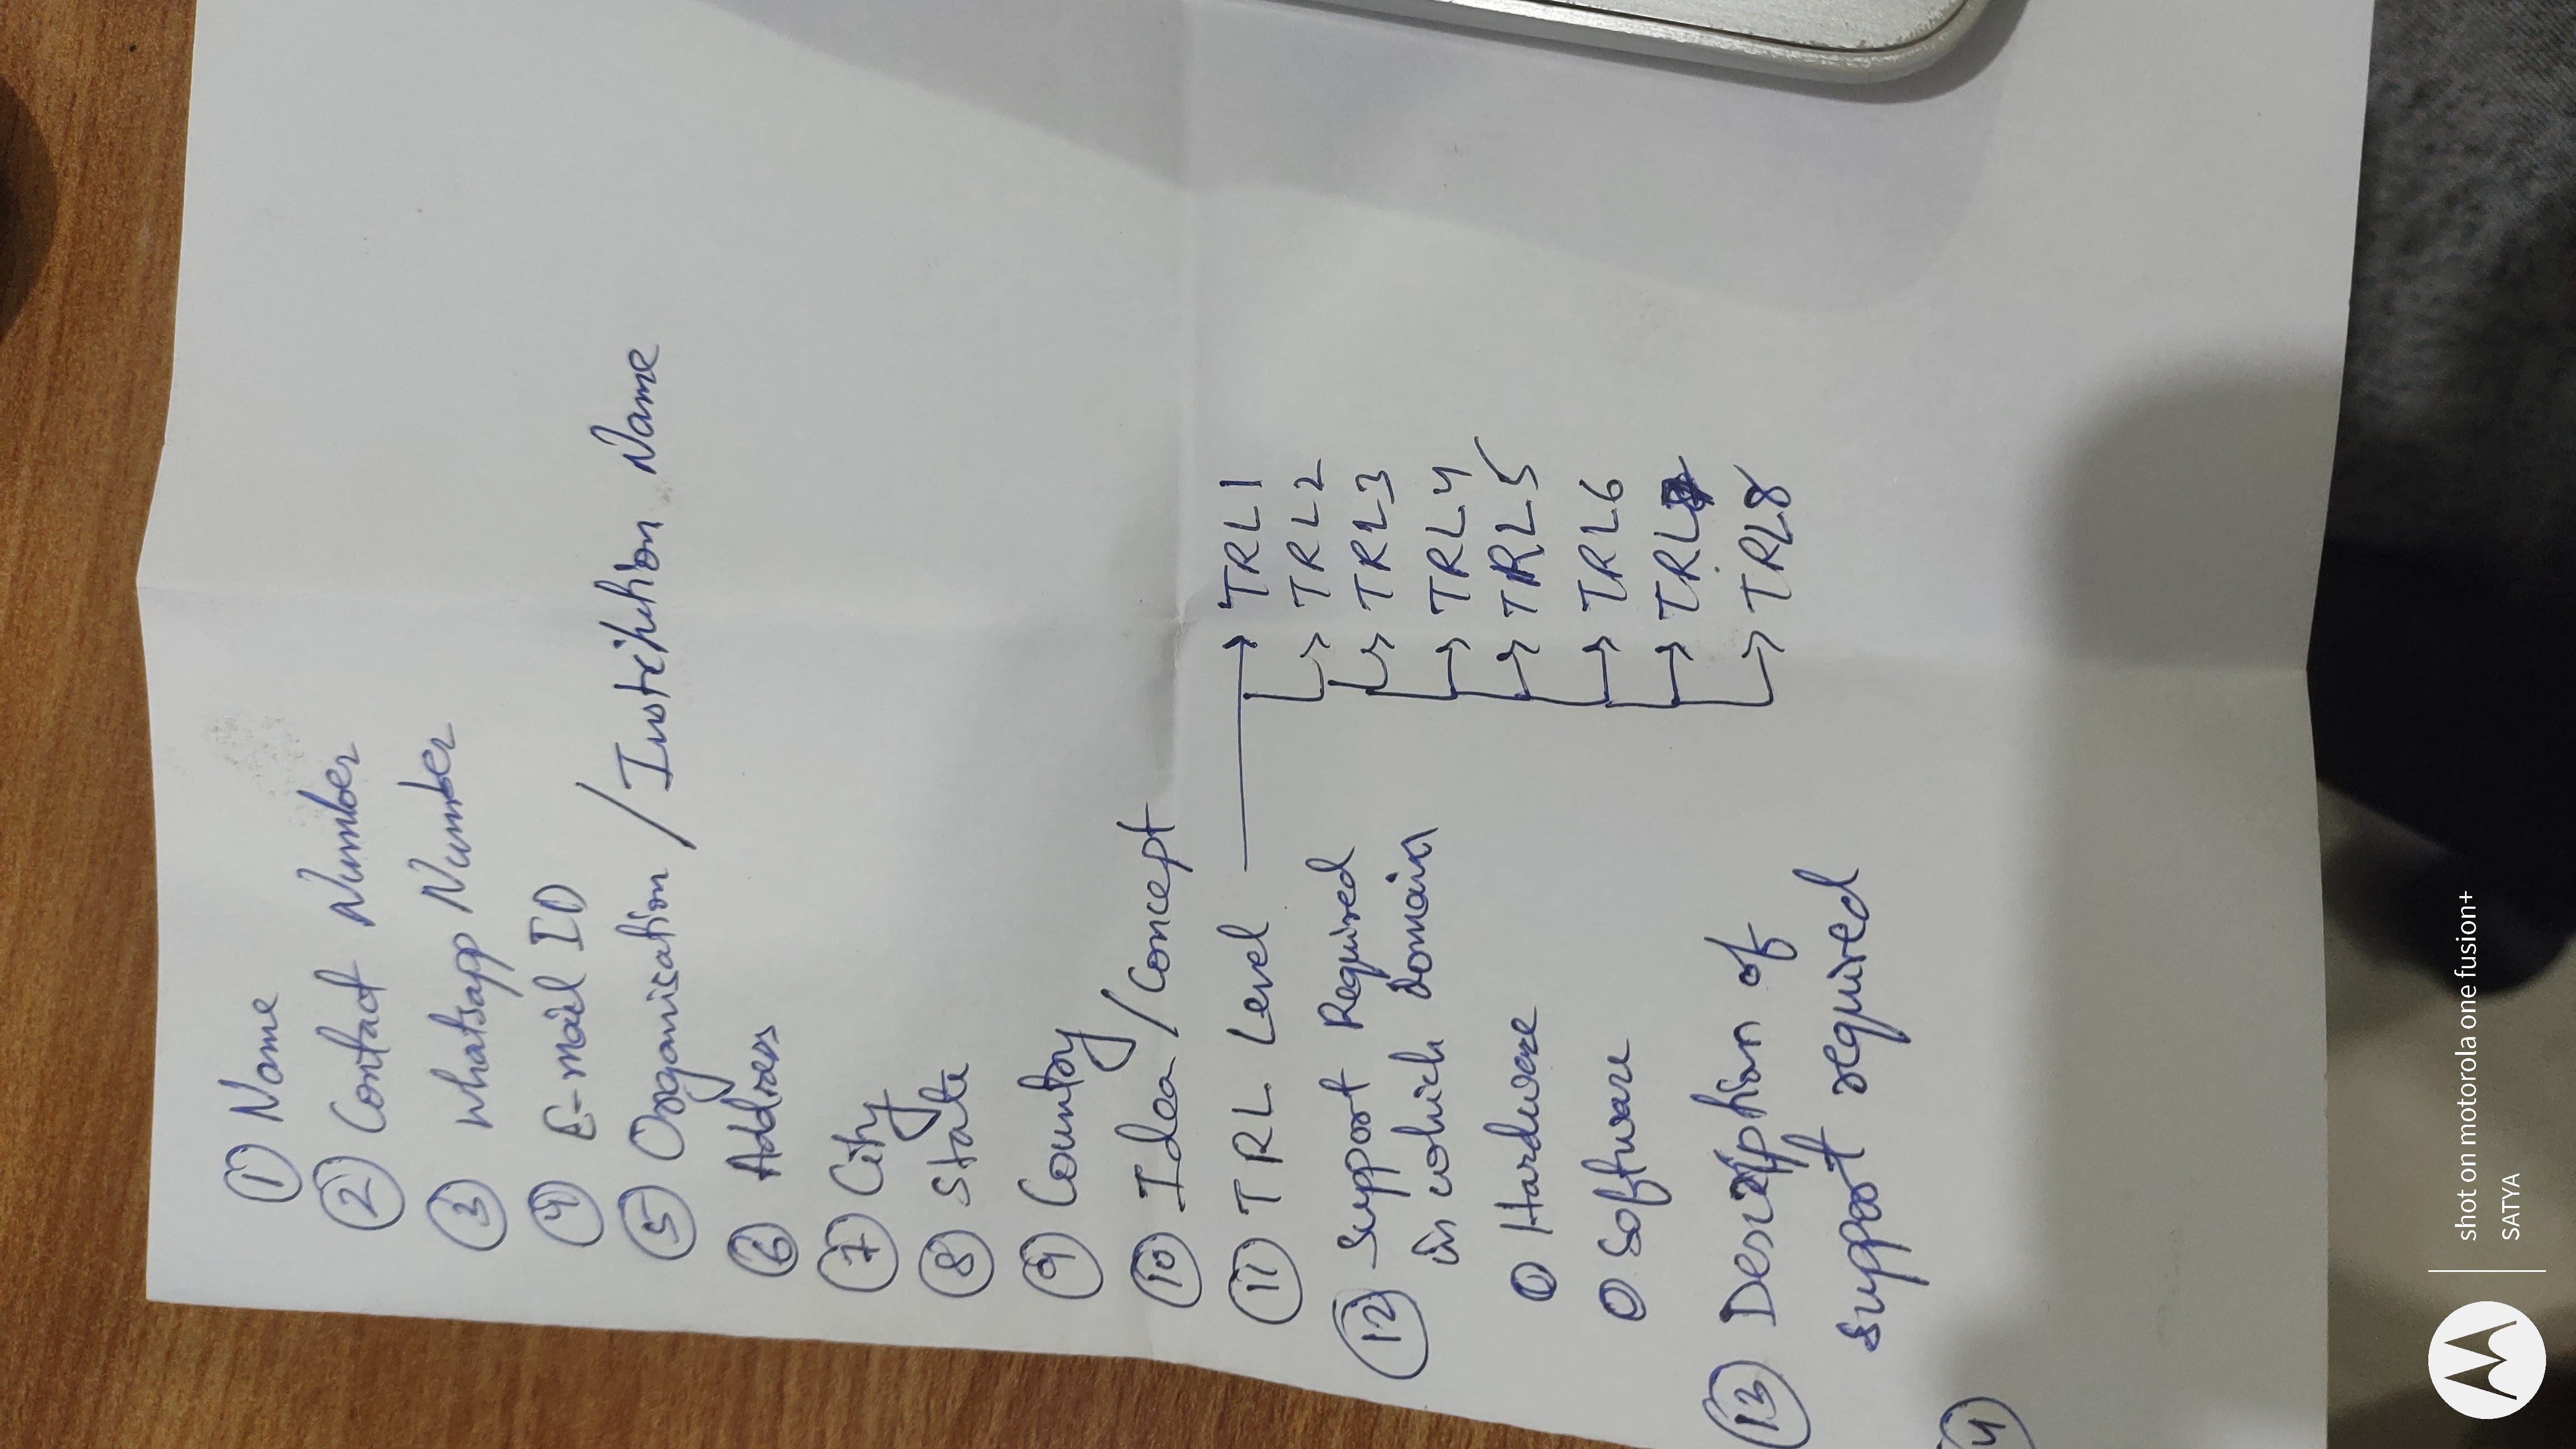 ① Name
② Contact Number
③ Whatsapp Number
④ E-mail ID
⑤ Organisation / Institution Name
⑥ Address
⑦ City
⑧ State
⑨ Country
⑩ Idea / Concept
⑪ TRL Level → TRL1
→ TRL2
→ TRL3
→ TRL4
→ TRL5
→ TRL6
→ TRL7
→ TRL8
⑫ Support Required
in which domain
○ Hardware
○ Software
⑬ Description of
support required
4
shot on motorola one fusion+
SATYA